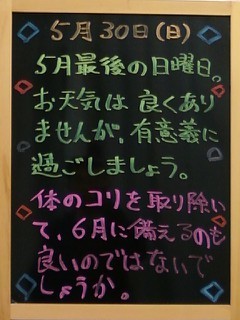 5月30日(日)
5月最後の日曜日。
お天気は良くあり
ませんが、有意義に
過ごしましょう。
体のコリを取り除い
て、6月に備えるのも
良いのではないで
しょうか。